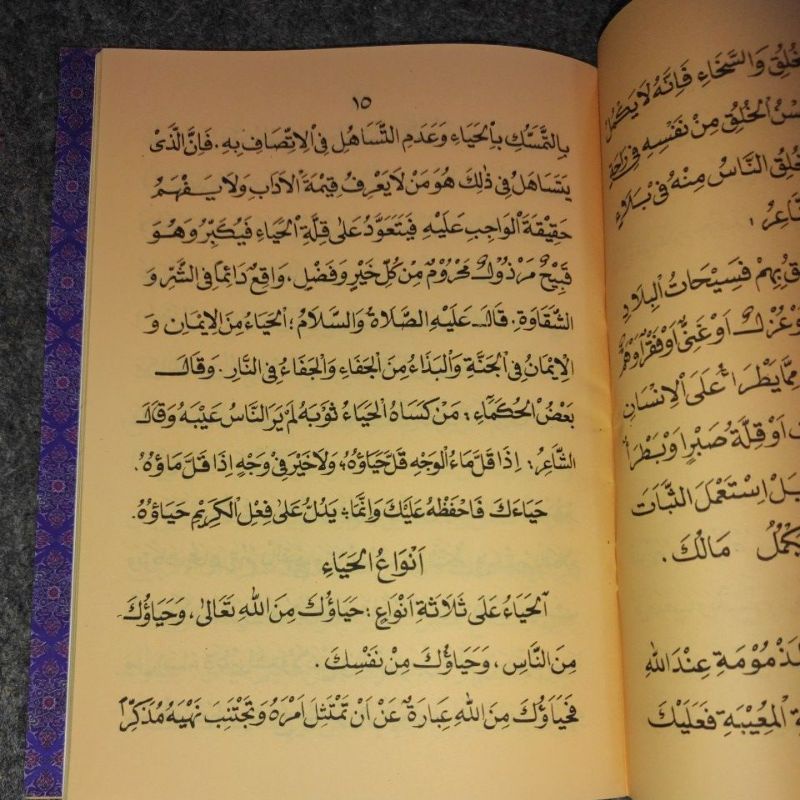 ١٥
بِالتَّمَسُّكِ بِالْحَيَاءِ وَعَدَمِ التَّسَاهُلِ فِى الْاِتِّصَافِ بِهِ. فَاِنَّ الَّذِىْ
يَتَسَاهَلُ فِى ذٰلِكَ هُوَ مَنْ لَا يَعْرِفُ قِيْمَةَ الْاٰدَابِ وَلَا يَفْهَمُ
حَقِيْقَةَ الْوَاجِبِ عَلَيْهِ فَيَتَعَوَّدُ عَلٰى قِلَّةِ الْحَيَاءِ فَيَكْبُرُ وَهُوَ
قَبِيْحٌ مَرْذُوْلٌ مَحْرُوْمٌ مِنْ كُلِّ خَيْرٍ وَفَضْلٍ، وَاقِعٌ دَائِمًا فِى الشَّرِّ وَ
الشَّقَاوَةِ. قَالَ عَلَيْهِ الصَّلَاةُ وَالسَّلَامُ؛ الْحَيَاءُ مِنَ الْاِيْمَانِ وَ
الْاِيْمَانُ فِى الْجَنَّةِ وَالْبَذَاءُ مِنَ الْجَفَاءِ وَالْجَفَاءُ فِى النَّارِ. وَقَالَ
بَعْضُ الْحُكَمَاءِ: مَنْ كَسَاهُ الْحَيَاءُ ثَوْبَهُ لَمْ يَرَ النَّاسُ عَيْبَهُ وَقَالَ
الشَّاعِرُ: اِذَا قَلَّ مَاءُ الْوَجْهِ قَلَّ حَيَاؤُهُ؛ وَلَا خَيْرَ فِى وَجْهٍ اِذَا قَلَّ مَاؤُهُ.
حَيَاءَكَ فَاحْفَظْهُ عَلَيْكَ وَاِنَّمَا؛ يَدُلُّ عَلٰى فِعْلِ الْكَرِيْمِ حَيَاؤُهُ.
اَنْوَاعُ الْحَيَاءِ
اَلْحَيَاءُ عَلٰى ثَلَاثَةِ اَنْوَاعٍ: حَيَاؤُكَ مِنَ اللهِ تَعَالٰى، وَحَيَاؤُكَ
مِنَ النَّاسِ، وَحَيَاؤُكَ مِنْ نَفْسِكَ.
فَحَيَاؤُكَ مِنَ اللهِ عِبَارَةٌ عَنْ اَنْ تَمْتَثِلَ اَمْرَهُ وَتَجْتَنِبَ نَهْيَهُ مُذَكِّرًا
وَالسَّخَاءِ فَاِنَّهُ لَا يَكْمُلُ
الْخُلُقِ مِنْ نَفْسِهِ فِى رَاحَةٍ
النَّاسُ مِنْهُ فِى بَلَاءٍ
بِهِمْ فَسِيْحَاتُ الْبِلَادِ
اَوْ غَنِىٌّ اَوْ فَقْرٌ
مِمَّا يَطْرَاُ عَلَى الْاِنْسَانِ
اَوْ قِلَّةُ صَبْرًا وَبَطْرًا
اِسْتَعْمَلَ الثَّبَاتَ
مَالُكَ.
عِنْدَ اللهِ
الْمُعِيْبَةِ فَعَلَيْكَ